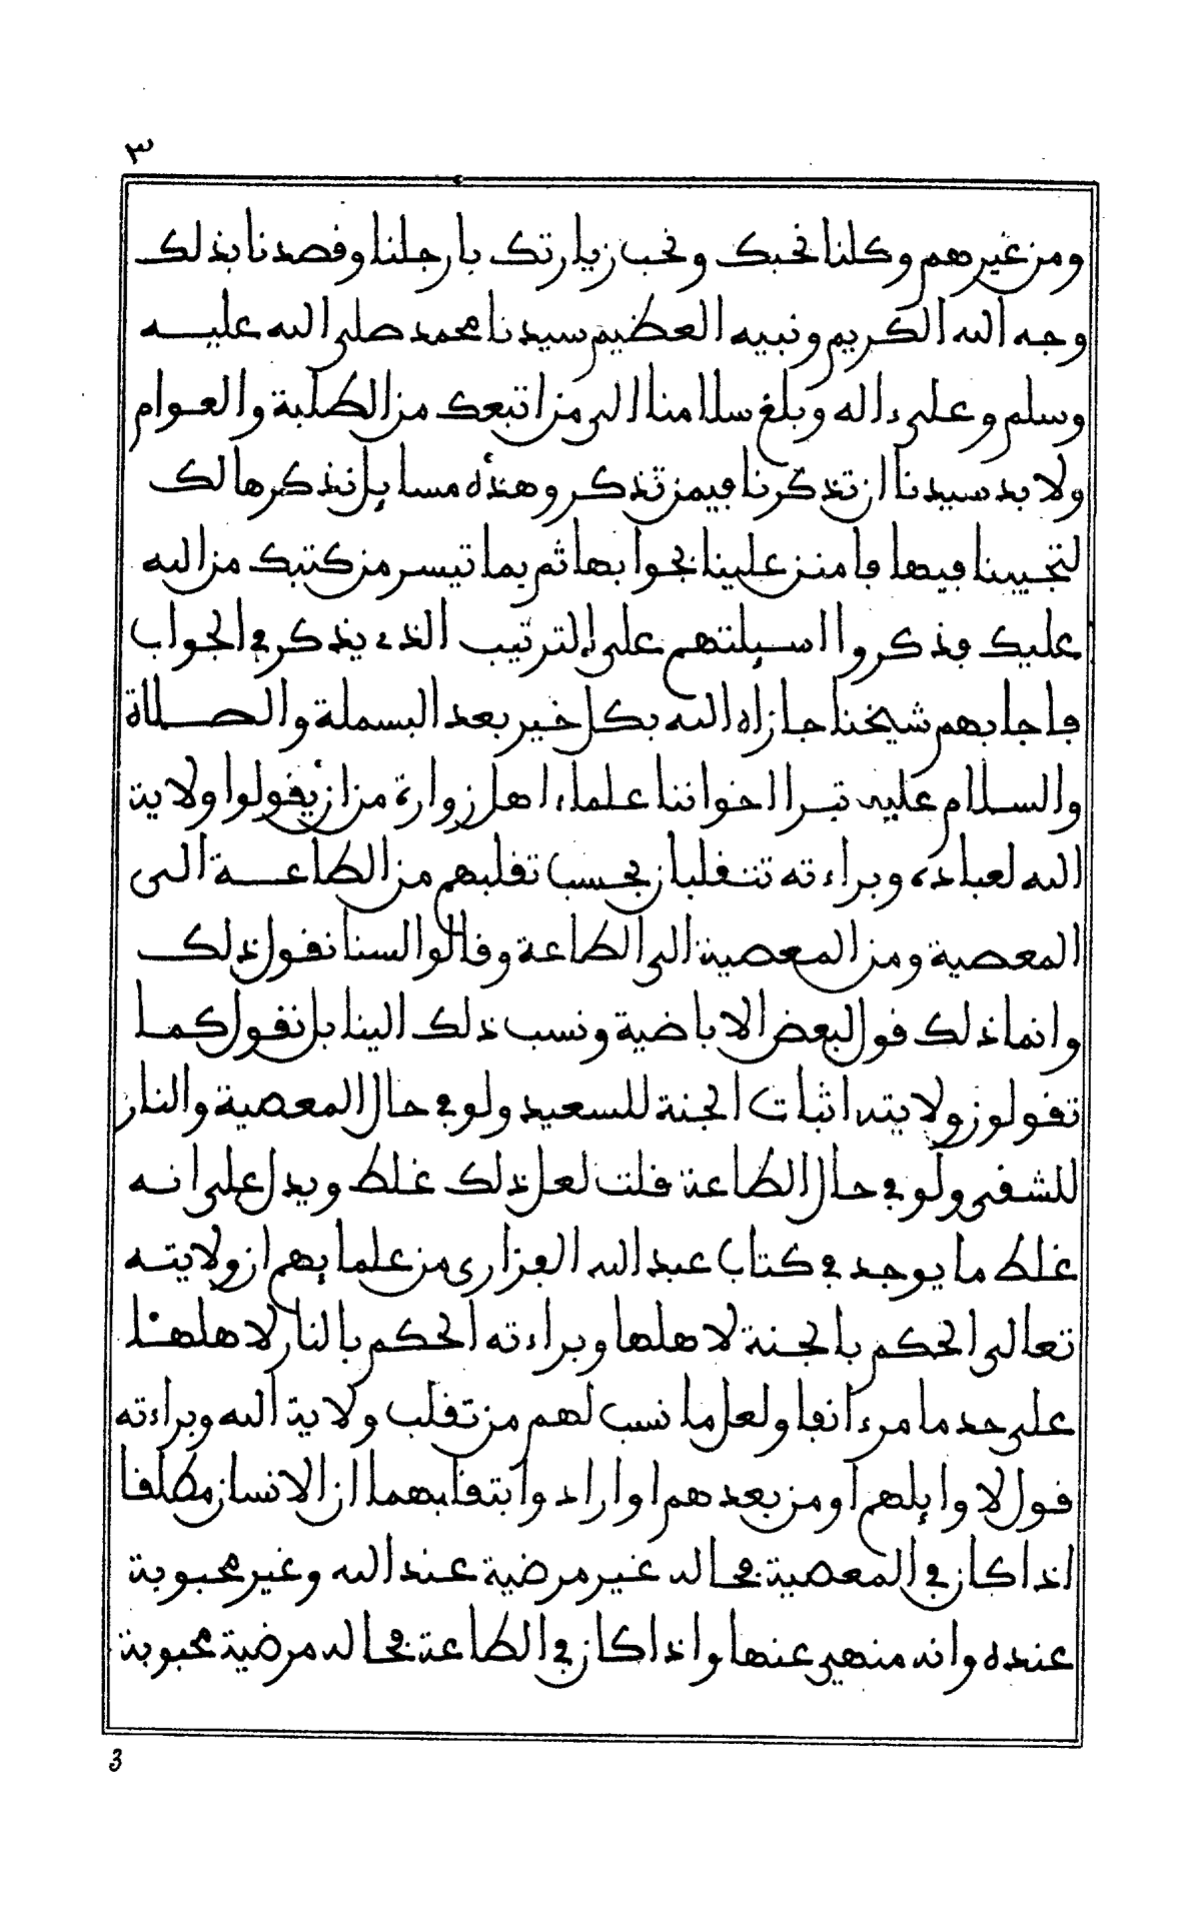 ٣
ومن غيرهم وكلنا نحبك ونحب زيارتك بارجلنا وقصدنا بذلك
وجه الله الكريم ونبيه العظيم سيدنا محمد صلى الله عليه
وسلم وعلى ءاله وبلغ سلامنا الى من اتبعك من الطلبة والعوام
ولا بد سيدنا ان تذكرنا فيمن تذكر وهذه مسايل نذكرها لك
لتجيبنا فيها فامنن علينا بجوابها ثم بما تيسر من كتبك من الله
عليك فذكروا اسيلتهم على الترتيب الذي يذكر في الجواب
فاجابهم شيخنا جازاه الله بكل خير بعد البسملة والصلاة
والسلام عليه تبرا اخواننا علماء اهل زوارة من ان يقولوا ولاية
الله لعباده وبراءته تنقلبان بحسب تقلبهم من الطاعة الى
المعصية ومن المعصية الى الطاعة وقالوا لسنا نقول ذلك
وانما ذلك قول لبعض الاباضية ونسب ذلك الينا بل نقول كما
تقولون ولايته اثبات الجنة للسعيد ولو في حال المعصية والنار
للشقي ولو في حال الطاعة قلت لعل ذلك غلط ويدل على انه
غلط ما يوجد في كتاب عبد الله الفزاري من علمايهم ان ولايته
تعالى الحكم بالجنة لاهلها وبراءته الحكم بالنار لاهلها
على حد ما مر ءانفا ولعل ما نسب لهم من تقلب ولاية الله وبراءته
قول لاوايلهم او من بعدهم او ارادوا بتقلبهما ان الانسان مطلقا
اذا كان في المعصية فحاله غير مرضية عند الله وغير محبوبة
عنده وانه منهي عنها واذا كان في الطاعة فحاله مرضية محبوبة
3